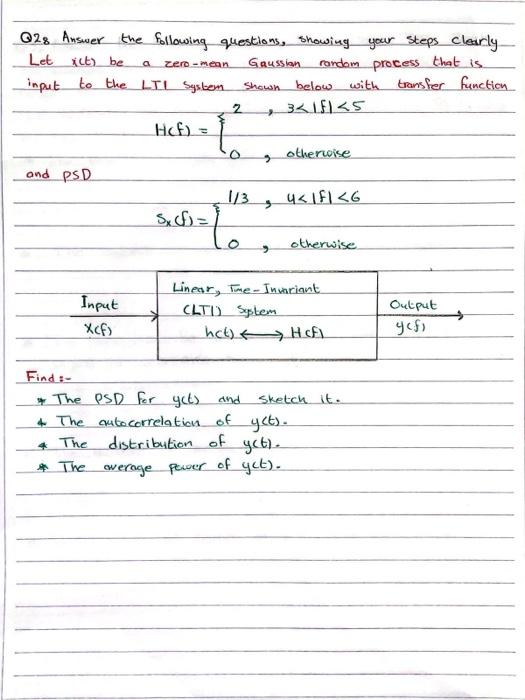 Q2: Answer the following questions, showing your steps clearly
Let x(t) be a zero-mean Gaussian random process that is
input to the LTI System shown below with transfer function
H(f) = { 2 , 3<|f|<5
0 , otherwise
and PSD
Sx(f) = { 1/3 , 4<|f|<6
0 , otherwise
Linear, Time-Invariant
Input (LTI) System Output
X(f) h(t) ⟷ H(f) y(f)
Find:-
* The PSD for y(t) and sketch it.
* The autocorrelation of y(t).
* The distribution of y(t).
* The average power of y(t).